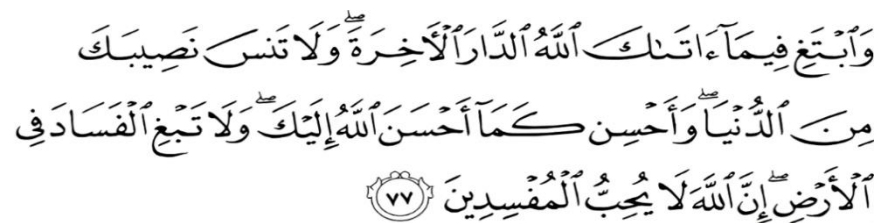 وَٱبْتَغِ فِيمَآ ءَاتَىٰكَ ٱللَّهُ ٱلدَّارَ ٱلْأَخِرَةَۖ وَلَا تَنسَ نَصِيبَكَ
مِنَ ٱلدُّنْيَاۖ وَأَحْسِن كَمَآ أَحْسَنَ ٱللَّهُ إِلَيْكَۖ وَلَا تَبْغِ ٱلْفَسَادَ فِى
ٱلْأَرْضِۖ إِنَّ ٱللَّهَ لَا يُحِبُّ ٱلْمُفْسِدِينَ ٧٧